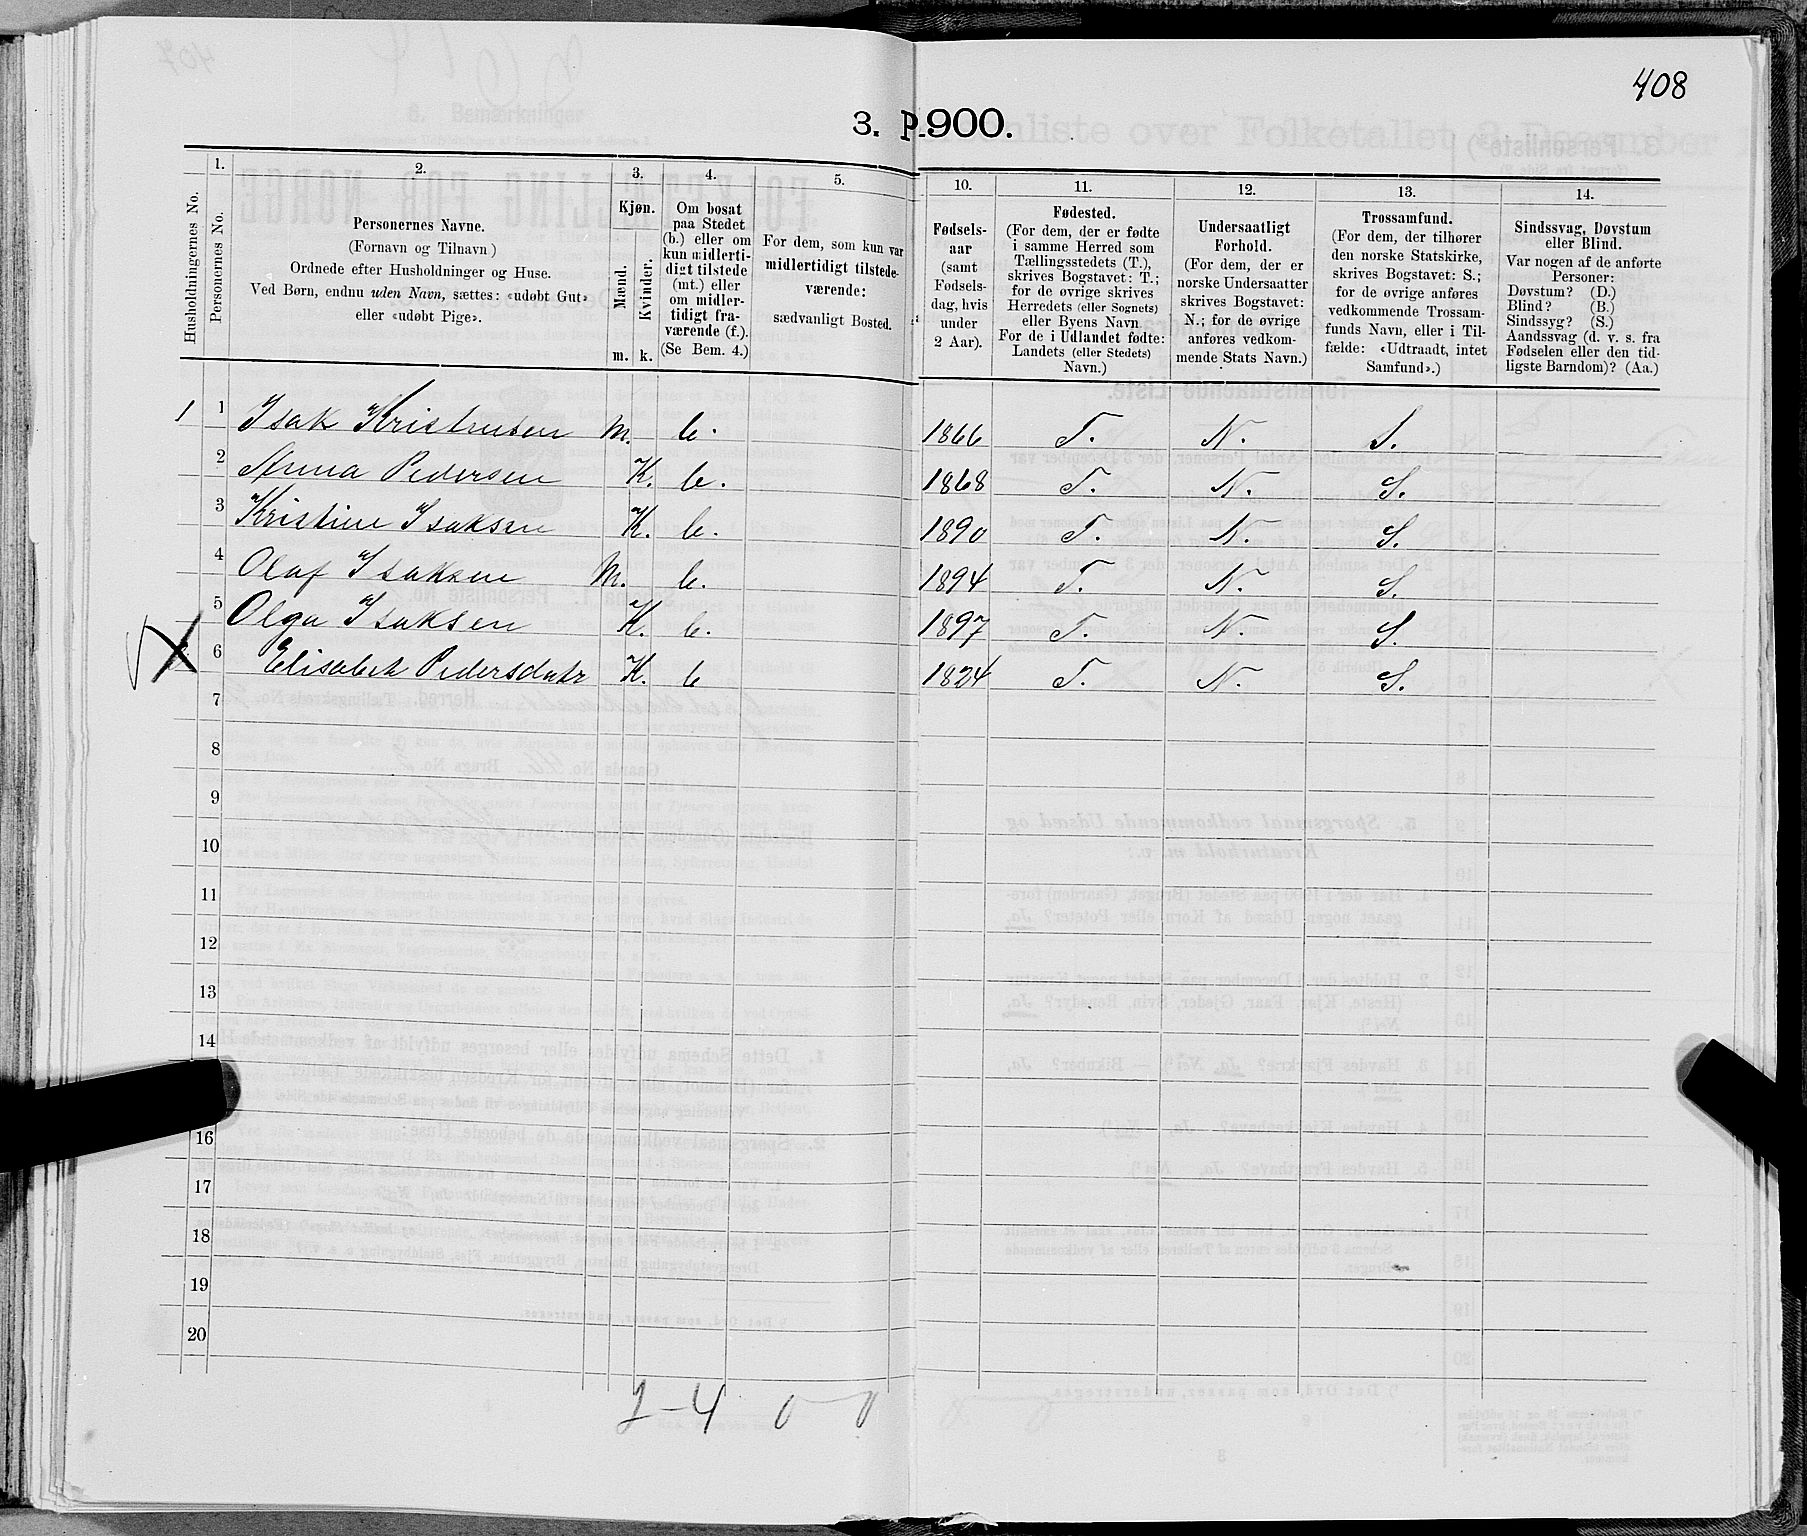 408
3. P.900.
1. 2. 3. 4. 5. 10. 11. 12. 13. 14.
Husholdningernes No.
Personernes No.
Personernes Navne.
(Fornavn og Tilnavn)
Ordnede efter Husholdninger og Huse.
Ved Børn, endnu uden Navn, sættes: «udøbt Gut»
eller «udøbt Pige».
Kjøn.
Mænd.
Kvinder.
m. k.
Om bosat
paa Stedet
(b.) eller om
kun midlerti-
digt tilstede
(mt.) eller
om midler-
tidigt fra-
værende (f.).
(Se Bem. 4.)
For dem, som kun var
midlertidigt tilstede-
værende:
sædvanligt Bosted.
Fødsels-
aar
(samt
Fødsels-
dag, hvis
under
2 Aar).
Fødested.
(For dem, der er fødte
i samme Herred som
Tællingsstedets (T.),
skrives Bogstavet: T.;
for de øvrige skrives
Herredets (eller Sognets)
eller Byens Navn
For de i Udlandet fødte:
Landets (eller Stedets)
Navn.)
Undersaatligt
Forhold.
(For dem, der er
norske Undersaatter
skrives Bogstavet:
N.; for de øvrige
anføres vedkom-
mende Stats Navn.)
Trossamfund.
(For dem, der tilhører
den norske Statskirke,
skrives Bogstavet: S.;
for de øvrige anføres
vedkommende Trossam-
funds Navn, eller i Til-
fælde: «Udtraadt, intet
Samfund».)
Sindssvag, Døvstum
eller Blind.
Var nogen af de anførte
Personer:
Døvstum? (D.)
Blind? (B.)
Sindssyg? (S.)
Aandssvag (d. v. s. fra
Fødselen eller den tid-
ligste Barndom)? (Aa.)
1 1 Isak Kristensen M. b. 1866 T. N. S.
2 Anna Pedersen K. b. 1868 T. N. S.
3 Kristine Isaksen K. b. 1890 T. N. S.
4 Olaf Isaksen M. b. 1894 T. N. S.
5 Olga Isaksen K. b. 1897 T. N. S.
6 Elisabet Pedersdatr K. b 1824 T. N. S.
7
8
9
10
11
12
13
14
16
17
18
19
20
2-4 0-0